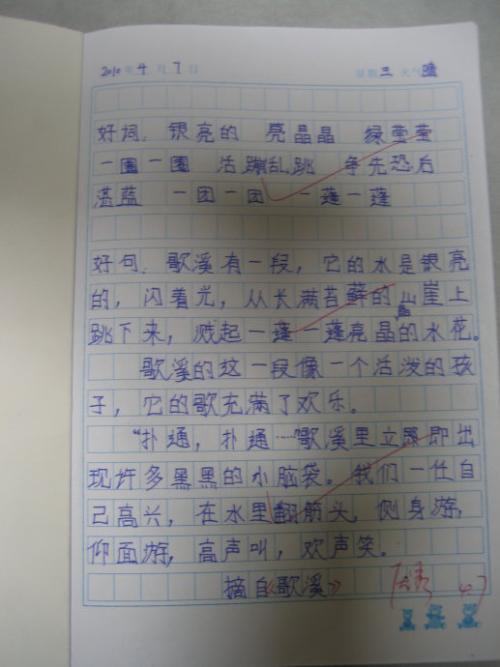 2010年4月7日 星期三 天气晴
好词: 银亮的 亮晶晶 绿莹莹
一圈一圈 活蹦乱跳 争先恐后
湛蓝 一团一团 一蓬一蓬
好句: 歌溪有一段，它的水是银亮
的，闪着光，从长满苔藓的山崖上
跳下来，溅起一蓬一蓬亮晶的水花。
歌溪的这一段像一个活泼的孩
子，它的歌充满了欢乐。
“扑通，扑通……”歌溪里立即出
现许多黑黑的小脑袋。我们一任自
己高兴，在水里翻筋头，侧身游，
仰面游，高声叫，欢声笑。
摘自《歌溪》
4.7